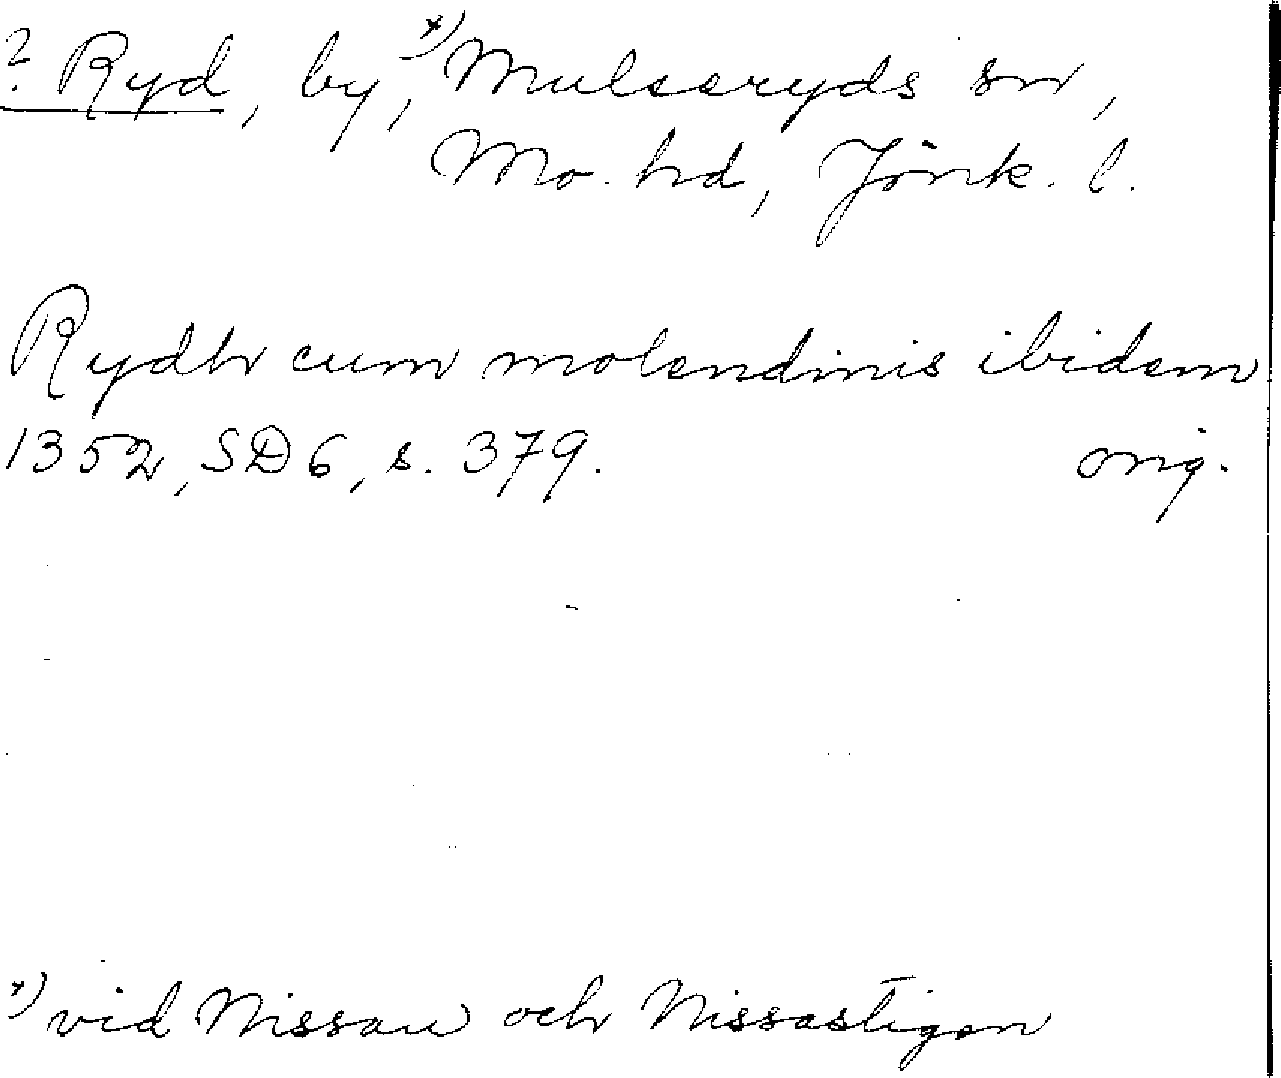 ? Ryd, by,*) Mulseryds sn,
Mo hd, Jönk. l.
Rydh cum molendinis ibidem
1352, SD 6, s. 379. orig.
*) vid Nissan och Nissastigen